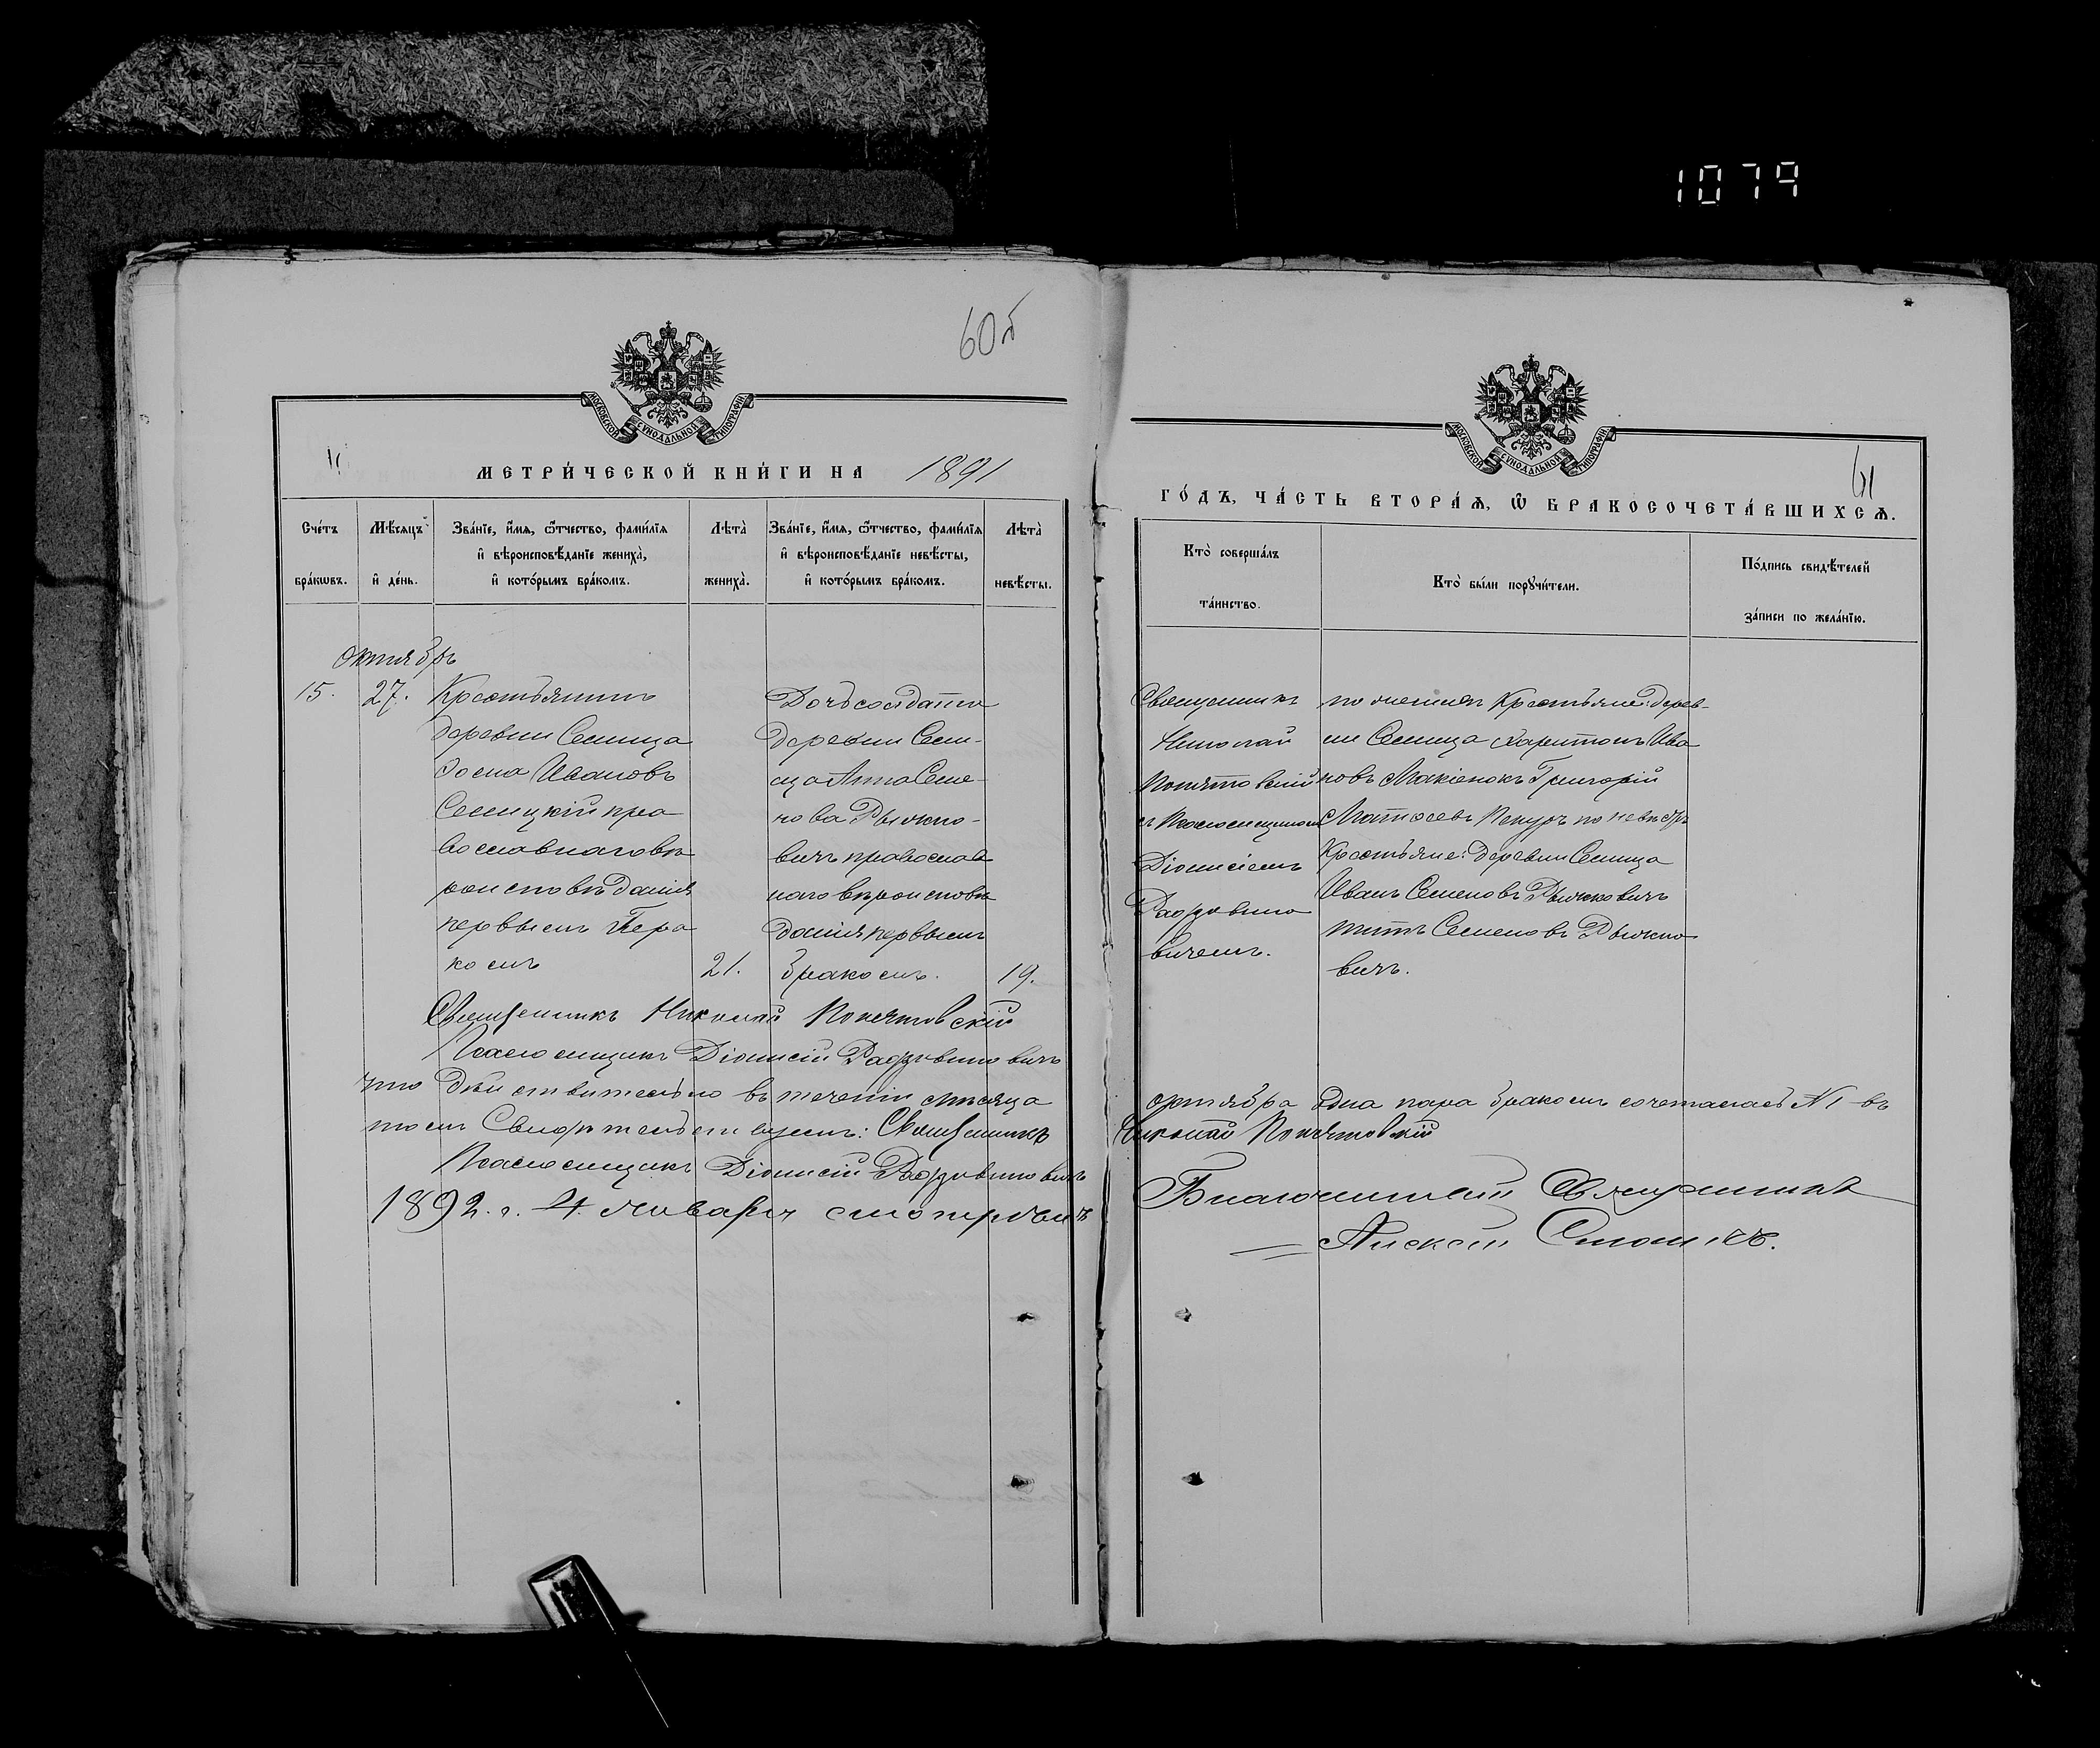 1079
60б
МОСКОВСКОЙ СѴНОДАЛЬНОЙ ТИПОГРАФІИ
МЕТРИ́ЧЕСКОЙ КНИ́ГИ НА 1891
Сче́тъ бра́кѡвъ.
Мѣ́сяцъ и҆ де́нь.
Зва́нїе, и҆́мя, ѻ҆́тчество, фами́лїя
и҆ вѣроисповѣ́данїе жениха̀,
и҆ кото́рымъ бра́комъ.
Лѣта̀ жениха̀.
Зва́нїе, и҆́мя, ѻ҆́тчество, фами́лїя
и҆ вѣроисповѣ́данїе невѣ́сты,
и҆ кото́рымъ бра́комъ.
Лѣта̀ невѣ́сты.
октябрь
15. 27.
Крестьянинъ
деревни Семища
Иванов
Семицкій пра
вославнаго вѣ
роисповѣданія
первымъ бра
комъ
21.
Дочь солдата
деревни Семи-
ща Анна Семе-
нова Рычко-
вичъ православ
наго вѣроисповѣ
данія первымъ
бракомъ.
19.
Священникъ Николай Понятовскій
Псаломщикъ Діонисій
что дѣйствительно въ теченіи мѣсяца
томъ Свидѣтельствуемъ: Священникъ
Псаломщикъ Діонисій
1892. г. 4. января смотрѣлъ
МОСКОВСКОЙ СѴНОДАЛЬНОЙ ТИПОГРАФІИ
61
ГО́ДЪ, ЧА́СТЬ ВТОРА́Ѧ, Ѽ БРАКОСОЧЕТА́ВШИХСѦ.
Кто̀ соверша́лъ
та́инство.
Кто̀ бы́ли порꙋчи́тели.
По́дпись свидѣ́телей
за́писи по жела́нїю.
Священникъ
Николай
Понятовскій
съ Псаломщикомъ
Діонисіемъ
вичемъ.
по женихѣ Крестьяне: дерев-
ни Семища Харитонъ Ива
новъ Григорій
по невѣстѣ
Крестьяне: деревни Семища
Иванъ Семеновъ Рычковичъ
Титъ Семеновъ Рычко
вичъ.
октября одна пара бракомъ сочеталась №1-въ
Николай Понятовскій
Благочинный Священникъ
Алексій